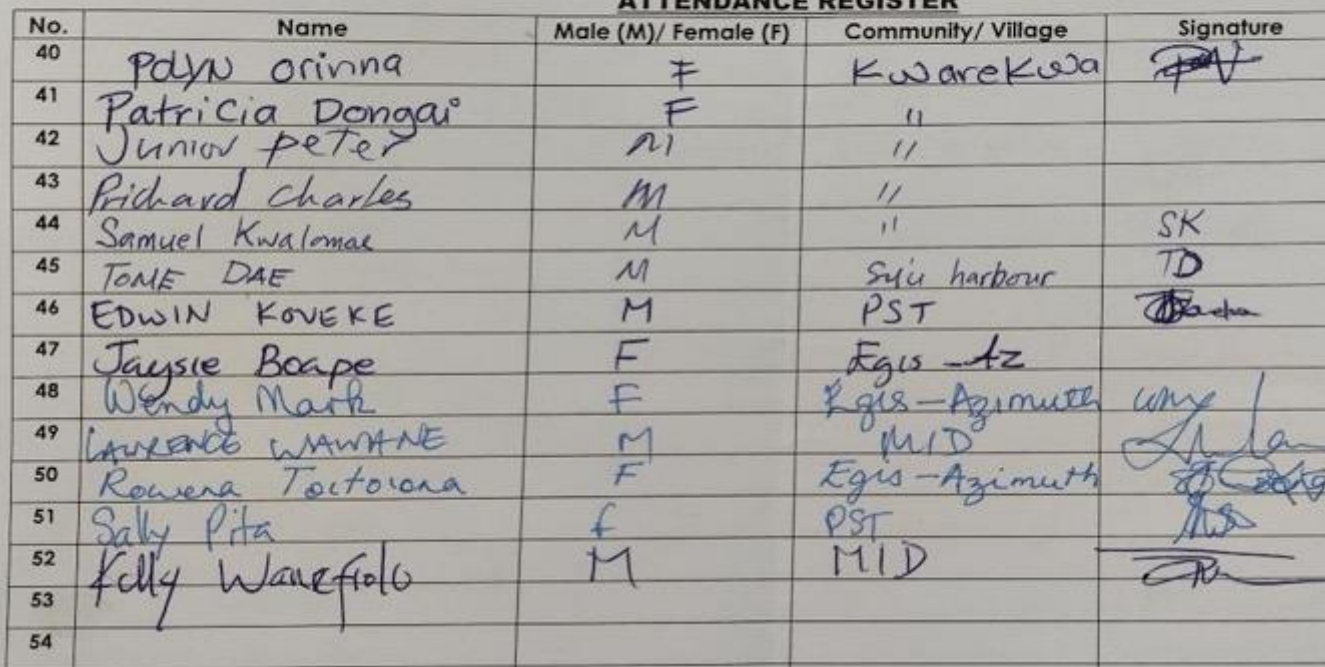 ATTENDANCE REGISTER
No. Name Male (M)/ Female (F) Community/ Village Signature
40 Polyn orinna F Kwarekwa
41 Patricia Dongai F "
42 Junior peter M "
43 Prichard Charles M "
44 Samuel Kwalomae M " SK
45 TOME DAE M Su'u harbour TD
46 EDWIN KOVEKE M PST
47 Jaysie Boape F Egis-Az
48 Wendy Mark F Egis-Azimuth
49 LAWRENCE WAWANE M MID
50 Rowena Toitorona F Egis-Azimuth
51 Sally Pita f PST
52 Kelly Wanefiolo M MID
53
54